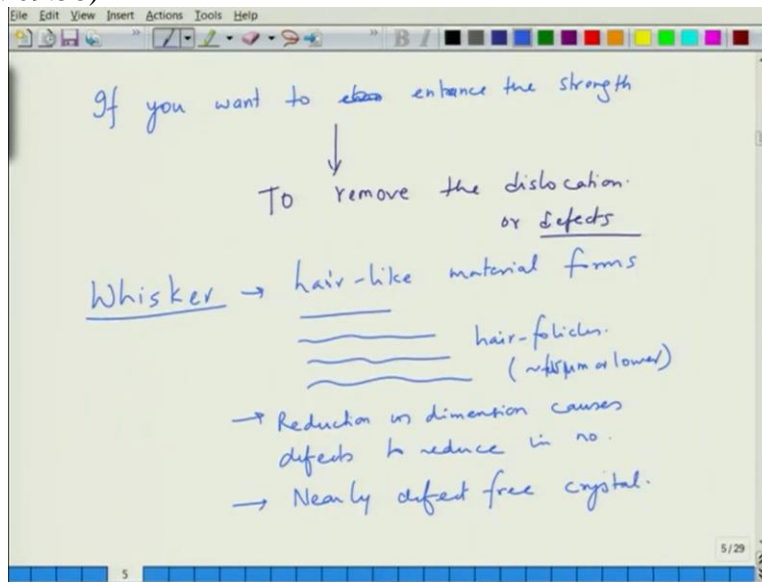 File Edit View Insert Actions Tools Help
B I
If you want to enhance the strength
To remove the dislocation.
or defects
Whisker → hair-like material forms
hair-folicles.
( μm or lower)
→ Reduction in dimension causes
defects to reduce in no.
→ Nearly defect free crystal.
5/29
5